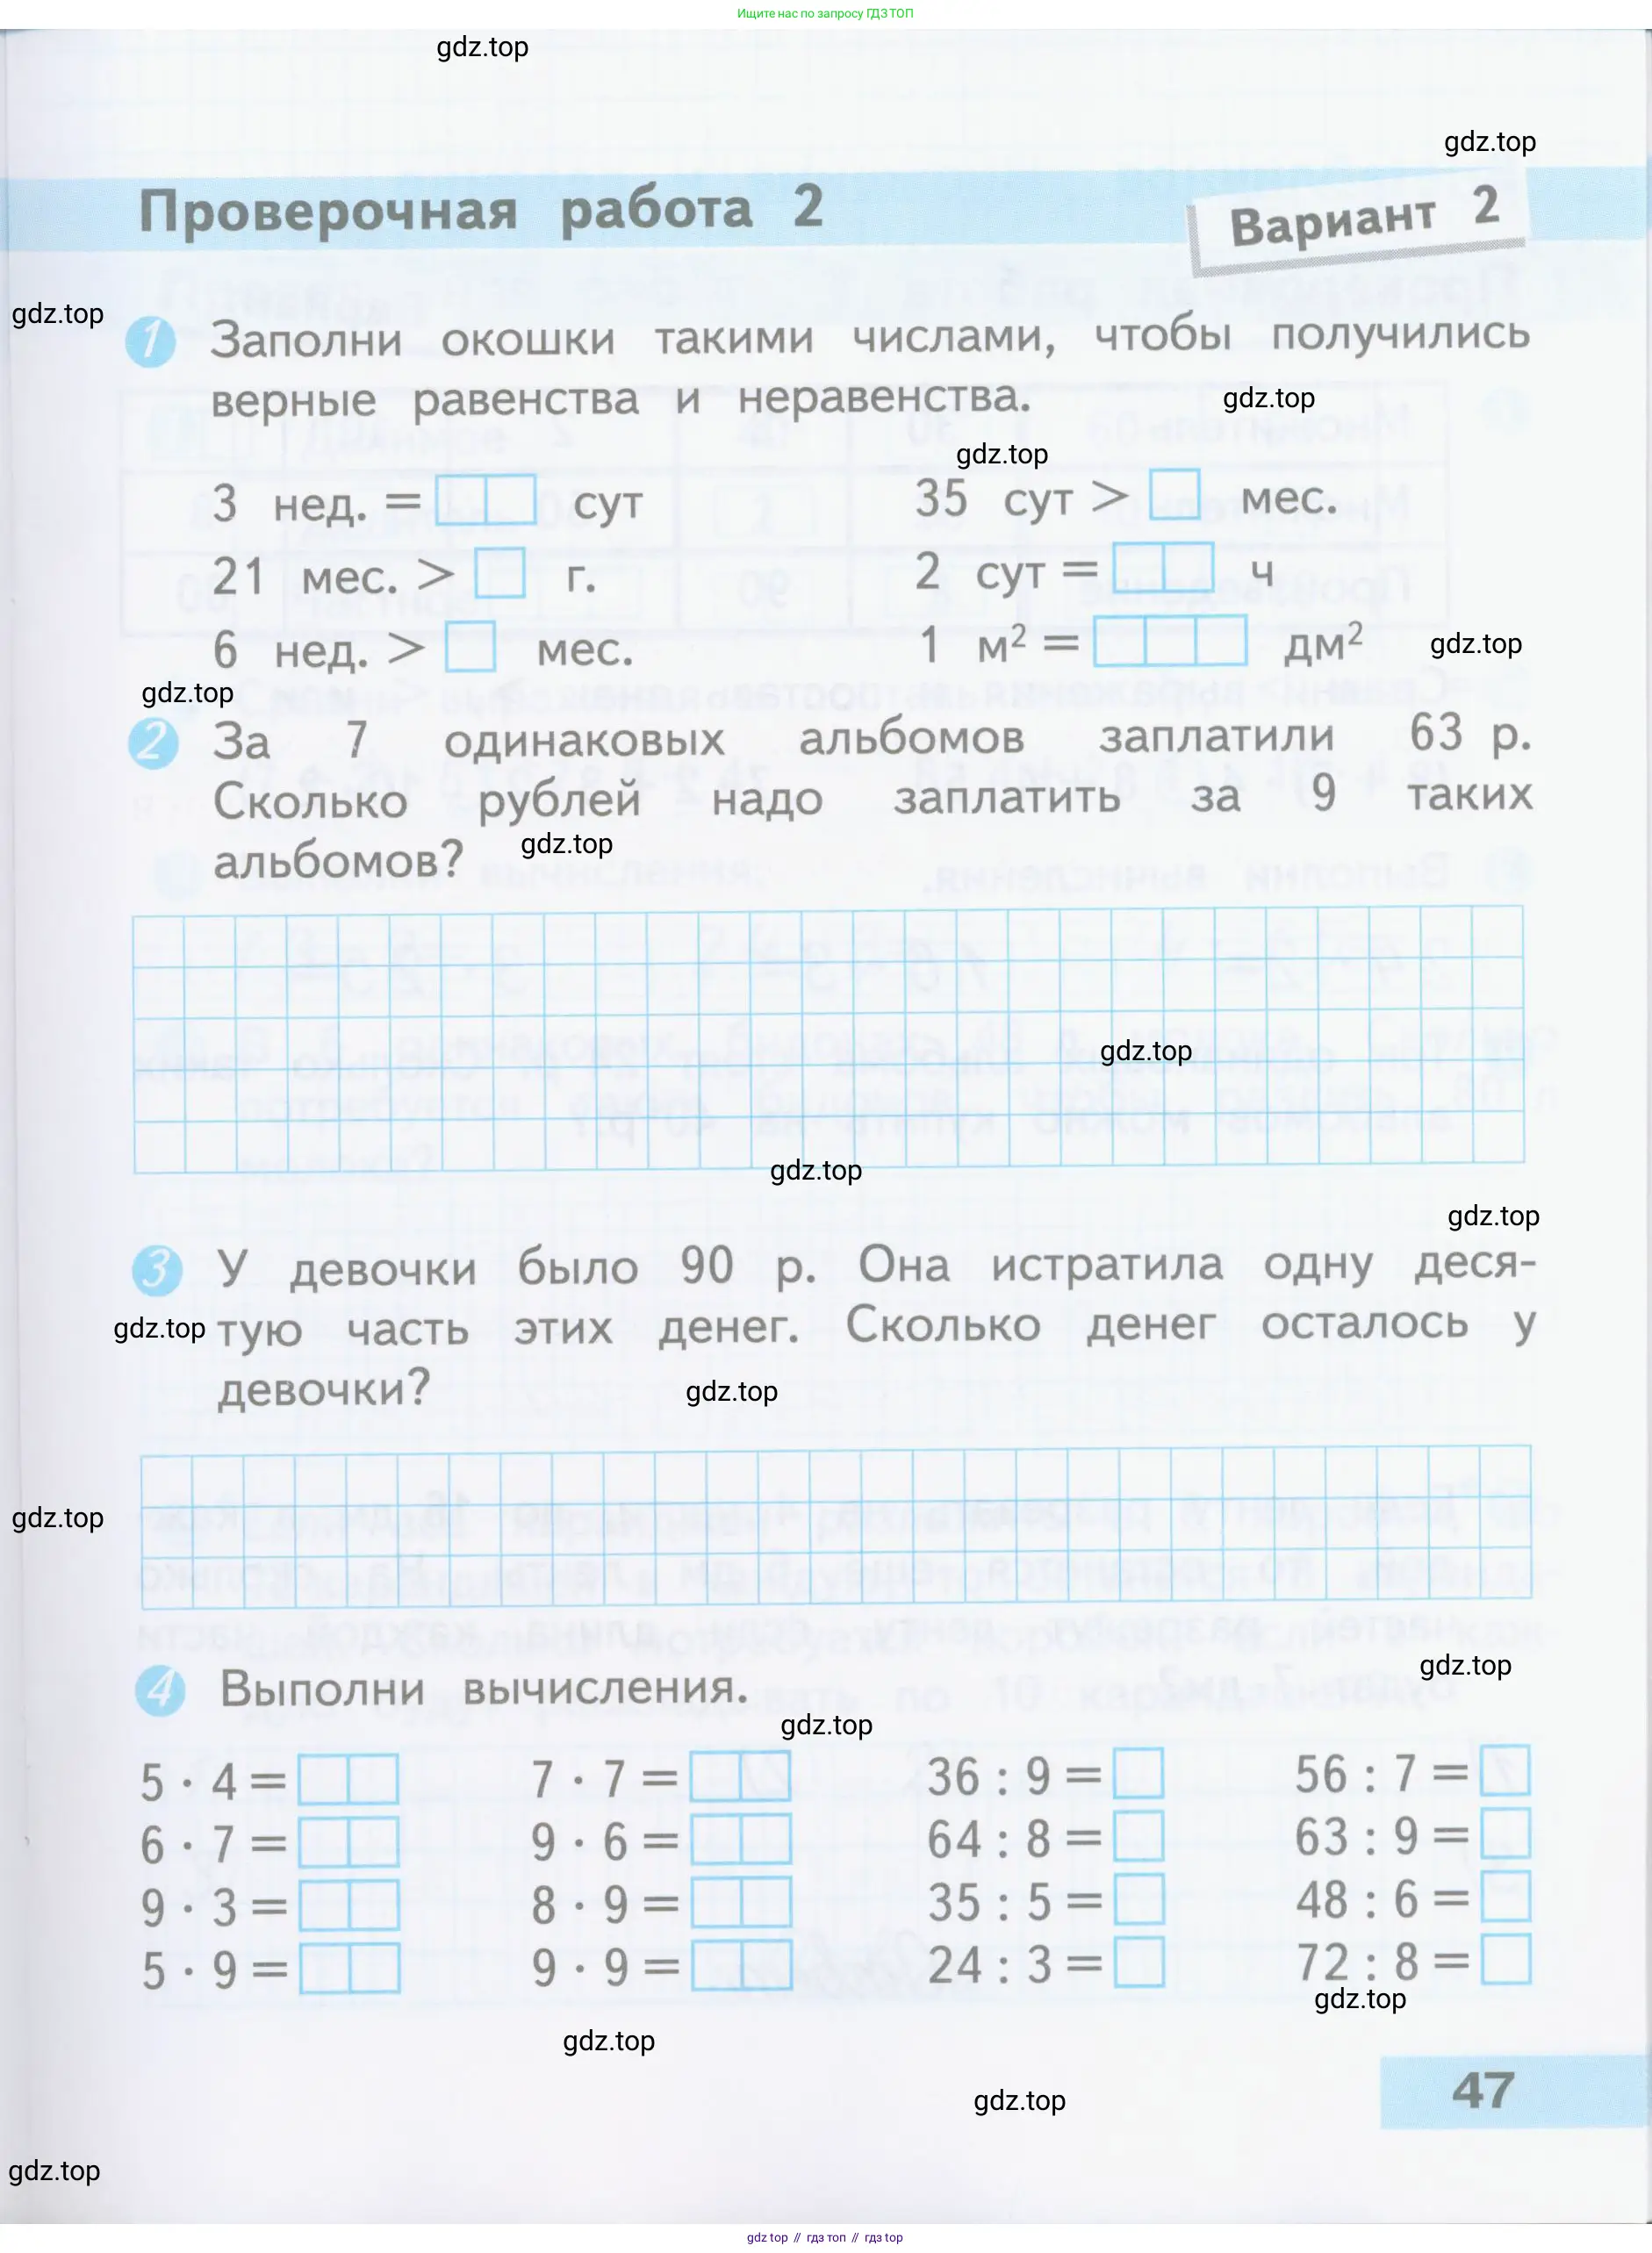 Ищите нас по запросу ГДЗ ТОП
gdz.top
gdz.top
Проверочная работа 2
Вариант 2
gdz.top
1 Заполни окошки такими числами, чтобы получились
верные равенства и неравенства.
gdz.top
gdz.top
3 нед. = сут
35 сут > мес.
21 мес. > г.
2 сут = ч
6 нед. > мес.
1 м² = дм²
gdz.top
gdz.top
2 За 7 одинаковых альбомов заплатили 63 р.
Сколько рублей надо заплатить за 9 таких
альбомов?
gdz.top
gdz.top
gdz.top
gdz.top
3 У девочки было 90 р. Она истратила одну деся-
gdz.top
тую часть этих денег. Сколько денег осталось у
девочки?
gdz.top
gdz.top
4 Выполни вычисления.
gdz.top
gdz.top
5 · 4 = 7 · 7 = 36 : 9 = 56 : 7 =
6 · 7 = 9 · 6 = 64 : 8 = 63 : 9 =
9 · 3 = 8 · 9 = 35 : 5 = 48 : 6 =
5 · 9 = 9 · 9 = 24 : 3 = 72 : 8 =
gdz.top
gdz.top
47
gdz.top
gdz.top
gdz top // гдз топ // гдз top